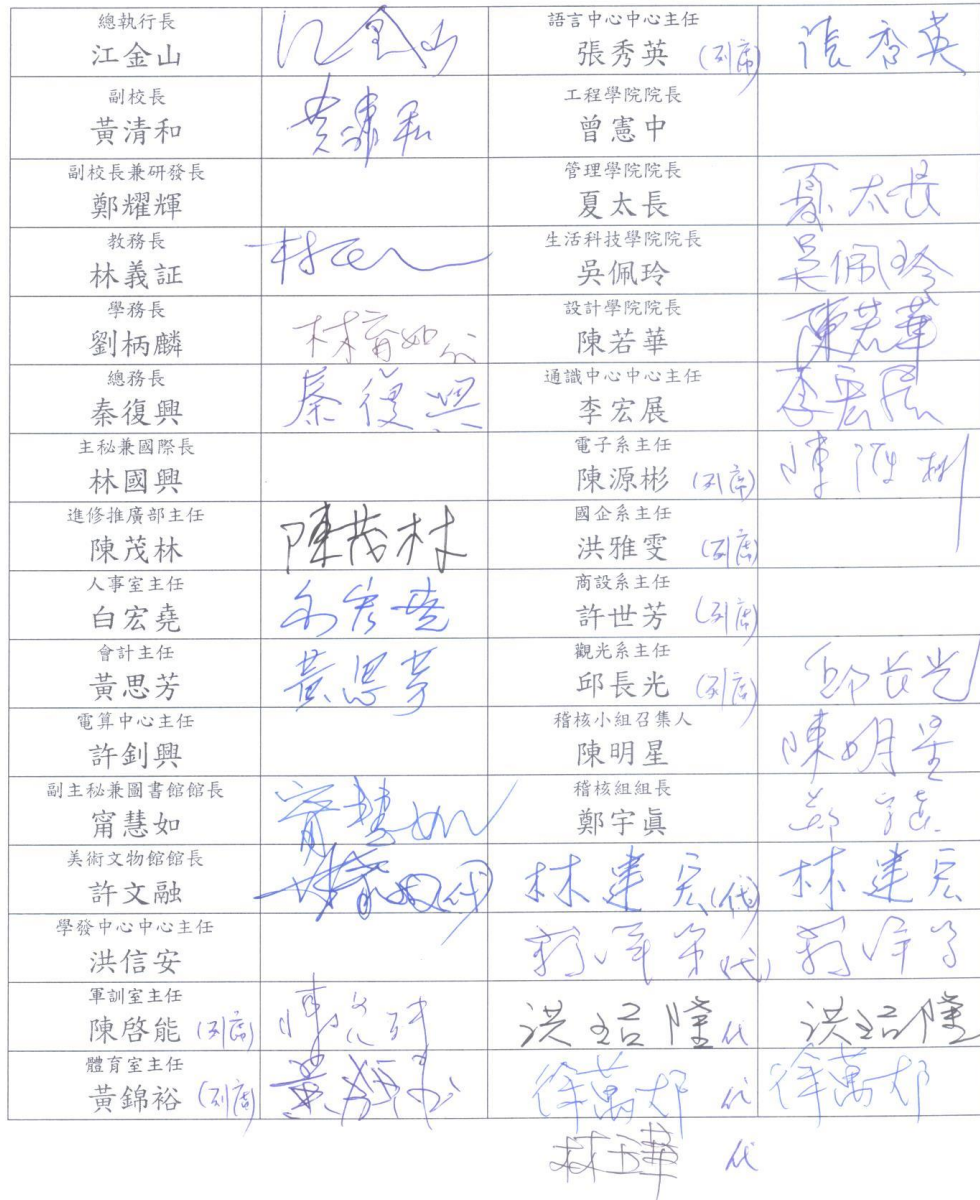 總執行長
江金山 江金山
語言中心中心主任
張秀英 (列席) 張秀英
副校長
黃清和 黃清和
工程學院院長
曾憲中
副校長兼研發長
鄭耀輝
管理學院院長
夏太長 夏太長
教務長
林義証
生活科技學院院長
吳佩玲 吳佩玲
學務長
劉柄麟 林育如代
設計學院院長
陳若華 陳若華
總務長
秦復興 秦復興
通識中心中心主任
李宏展 李宏展
主秘兼國際長
林國興
電子系主任
陳源彬 (列席) 陳源彬
進修推廣部主任
陳茂林 陳茂林
國企系主任
洪雅雯 (列席)
人事室主任
白宏堯 白宏堯
商設系主任
許世芳 (列席)
會計主任
黃思芳 黃思芳
觀光系主任
邱長光 (列席) 邱長光
電算中心主任
許釗興
稽核小組召集人
陳明星 陳明星
副主秘兼圖書館館長
甯慧如 甯慧如
稽核組組長
鄭宇眞
美術文物館館長
許文融
林建宏(代) 林建宏
學發中心中心主任
洪信安
代
軍訓室主任
陳啓能 (列席)
洪紹隆代 洪紹隆
體育室主任
黃錦裕 (列席)
徐萬邦 代 徐萬邦
代